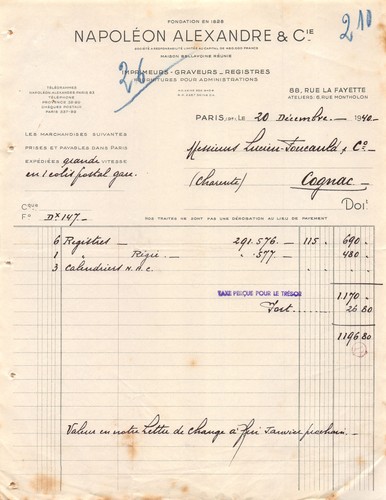 FONDATION EN 1828
210
NAPOLÉON ALEXANDRE & CIE
SOCIÉTÉ A RESPONSABILITÉ LIMITÉE AU CAPITAL DE FRANCS
MAISON BALLAVOINE RÉUNIE
26
IMPRIMEURS - GRAVEURS - REGISTRES
FOURNITURES POUR ADMINISTRATIONS
TÉLÉGRAMMES
NAPOLÉON-ALEXANDRE-PARIS
TÉLÉPHONE
PROVENCE
CHÈQUES POSTAUX
PARIS
88, RUE LA FAYETTE
ATELIERS: 6, RUE MONTHOLON
PARIS, (9e) LE 20 Décembre 1940
LES MARCHANDISES SUIVANTES
PRISES ET PAYABLES DANS PARIS
EXPÉDIÉES grande VITESSE
en 1 colis postal gare.
Messieurs Lucien-Foucauld & Co
(Charente) Cognac
DOIT
Cde
Fo Dx 147
NOS TRAITES NE SONT PAS UNE DÉROGATION AU LIEU DE PAIEMENT
6 Registres 291.576. 115 690
1 " Régie " .577 480
3 Calendriers N.A.C.
TAXE PERÇUE POUR LE TRÉSOR 1170
Port 26 80
1196 80
Valeur en notre Lettre de Change à fin Janvier prochain.